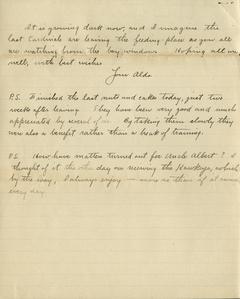 It is growing dark now, and I imagine the
last Cardinals are leaving the feeding place as you all
are watching from the bay windows. Hoping all are
well, with best wishes
Your Aldo
P.S. Finished the last nuts and cake today, just two
weeks after leaving. They have been very good and much
appreciated by several of us. By taking them slowly they
were also a benefit rather than a break of training.
P.S. How have matters turned out for Uncle Albert? I
thought of it the other day on receiving the Hawkeye, which
by the way, I always enjoy —
every day.